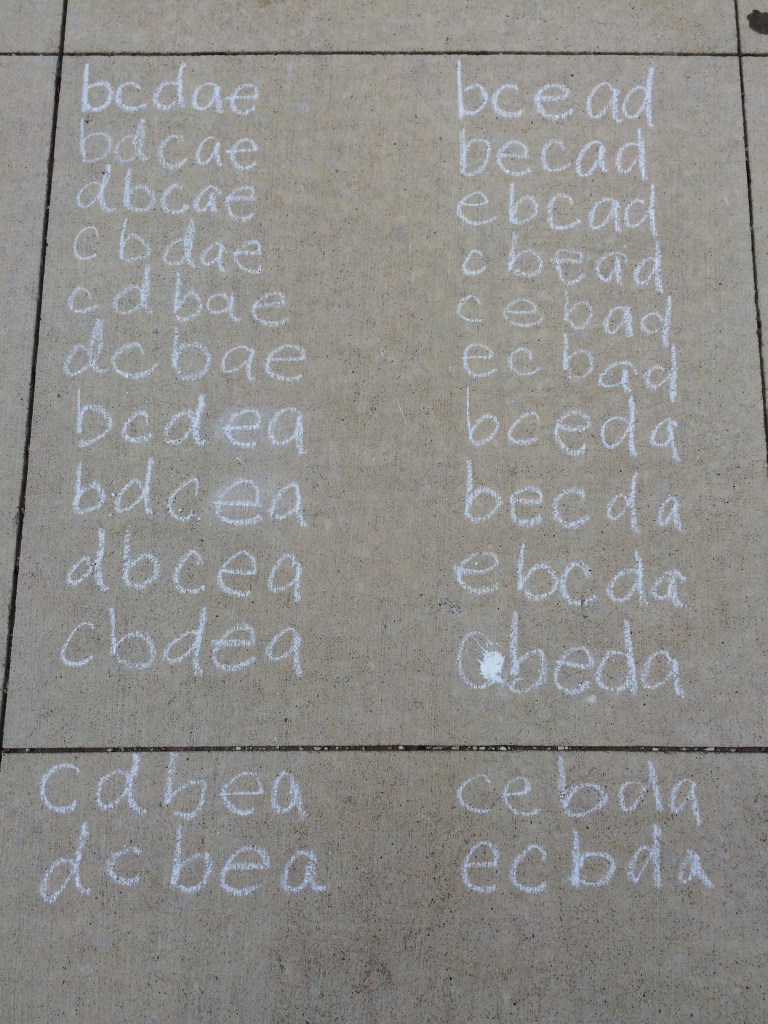 bcdae
bdcae
dbcae
cbdae
cdbae
dcbae
bcdea
bdcea
dbcea
cbdea
cdbea
dcbea
bcead
becad
ebcad
cbead
cebad
ecbad
bceda
becda
ebcda
cbeda
cebda
ecbda